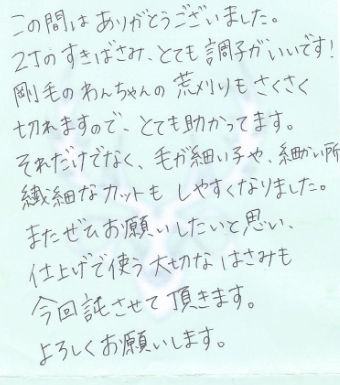 この間はありがとうございました。
2丁のすきばさみ、とても調子がいいです!
剛毛のわんちゃんの荒刈りもさくさく
切れますので、とても助かってます。
それだけでなく、毛が細い子や、細かい所
繊細なカットもしやすくなりました。
またぜひお願いしたいと思い、
仕上げで使う大切なはさみも
今回託させて頂きます。
よろしくお願いします。